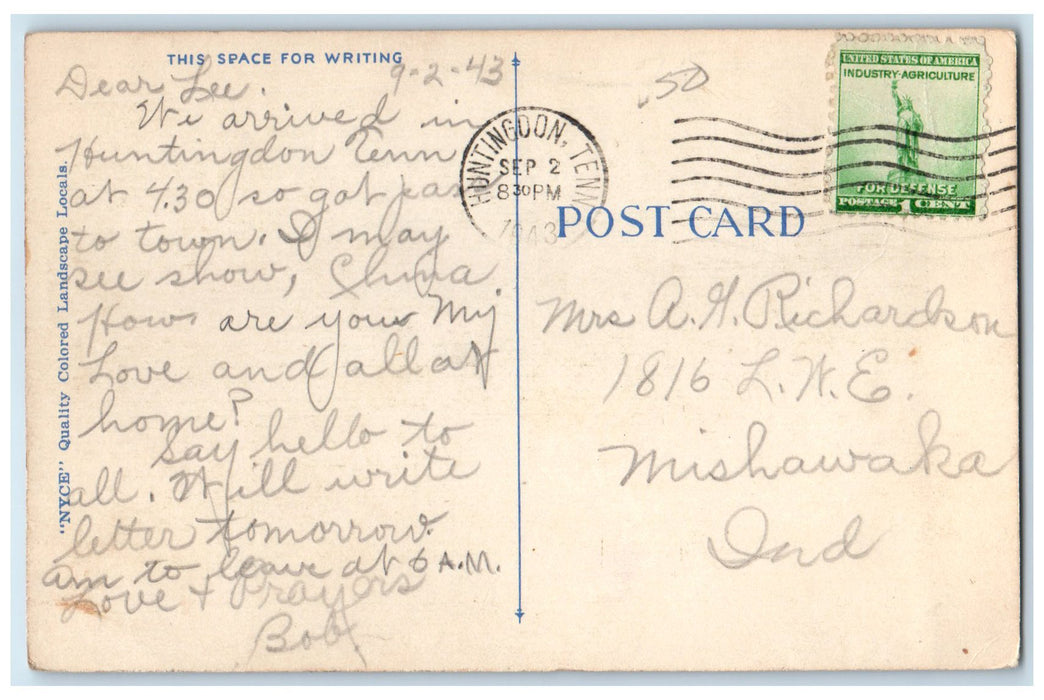 THIS SPACE FOR WRITING
9-2-43
Dear Lee.
We arrived in
Huntingdon Tenn
at 4.30 so got pass
to town. I may
see show, China.
How are you My
Love and all at
home?
Say hello to
all. Will write
letter tomorrow.
am to leave at 6 A.M.
Love + Prayers
Bob.
"NYCE" Quality Colored Landscape Locals.
.50
HUNTINGDON, TENN
SEP 2
8 30 PM
1943
UNITED STATES OF AMERICA
INDUSTRY·AGRICULTURE
FOR DEFENSE
POSTAGE 1 CENT
POST CARD
Mrs A. G. Richardson
1816 L. W. E.
Mishawaka
Ind